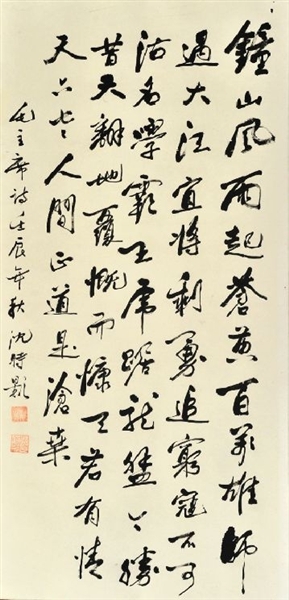 鐘山風雨起蒼黄百萬雄師
過大江宜將剩勇追窮寇不可
沽名學霸王虎踞龍盤今勝
昔天翻地覆慨而慷天若有情
天亦老人間正道是滄桑
毛主席詩壬辰年秋沈